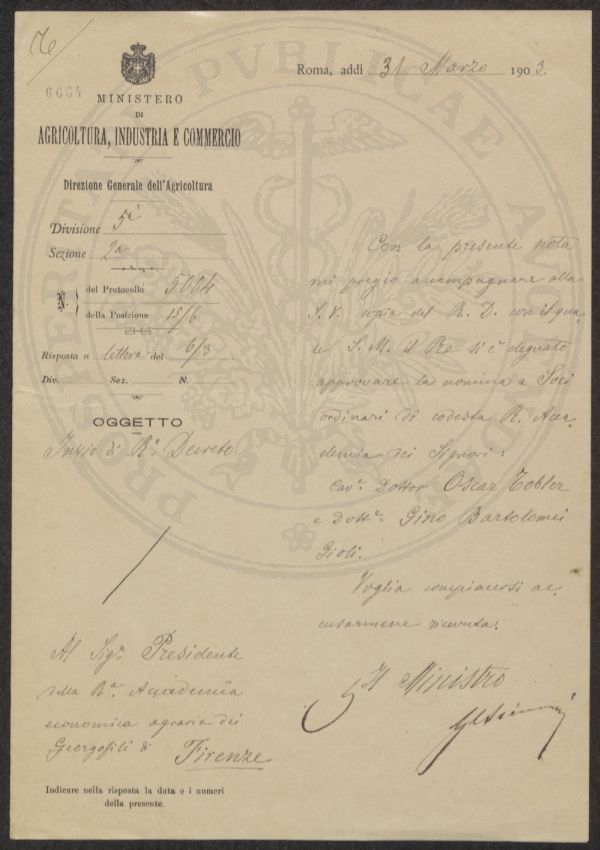 6664
MINISTERO
DI
AGRICOLTURA, INDUSTRIA E COMMERCIO
Direzione Generale dell'Agricoltura
Divisione 5ª
Sezione 2ª
N. del Protocollo 5004
della Posizione 15/6
Risposta a lettera del 6/3
Div. Sez. N.
OGGETTO
Invio di R.º Decreto
Al Sigr. Presidente
della Rª. Accademia
economica agraria dei
Georgofili di
Firenze
Indicare nella risposta la data e i numeri
della presente.
Roma, addì 31 Marzo 1903.
Con la presente nota
mi pregio accompagnare alla
S. V. copia del R. D. con il qua-
le S. M. il Re si è degnato
approvare la nomina a Soci
ordinari di codesta R. Acca-
demia dei Signori:
Cavr. Dottor Oscar Tobler
e Dottr. Gino Bartolomei
Gioli.
Voglia compiacersi ac-
cusarmene ricevuta.
Il Ministro
PROSPERITATI PVBLICAE AVGENDAE